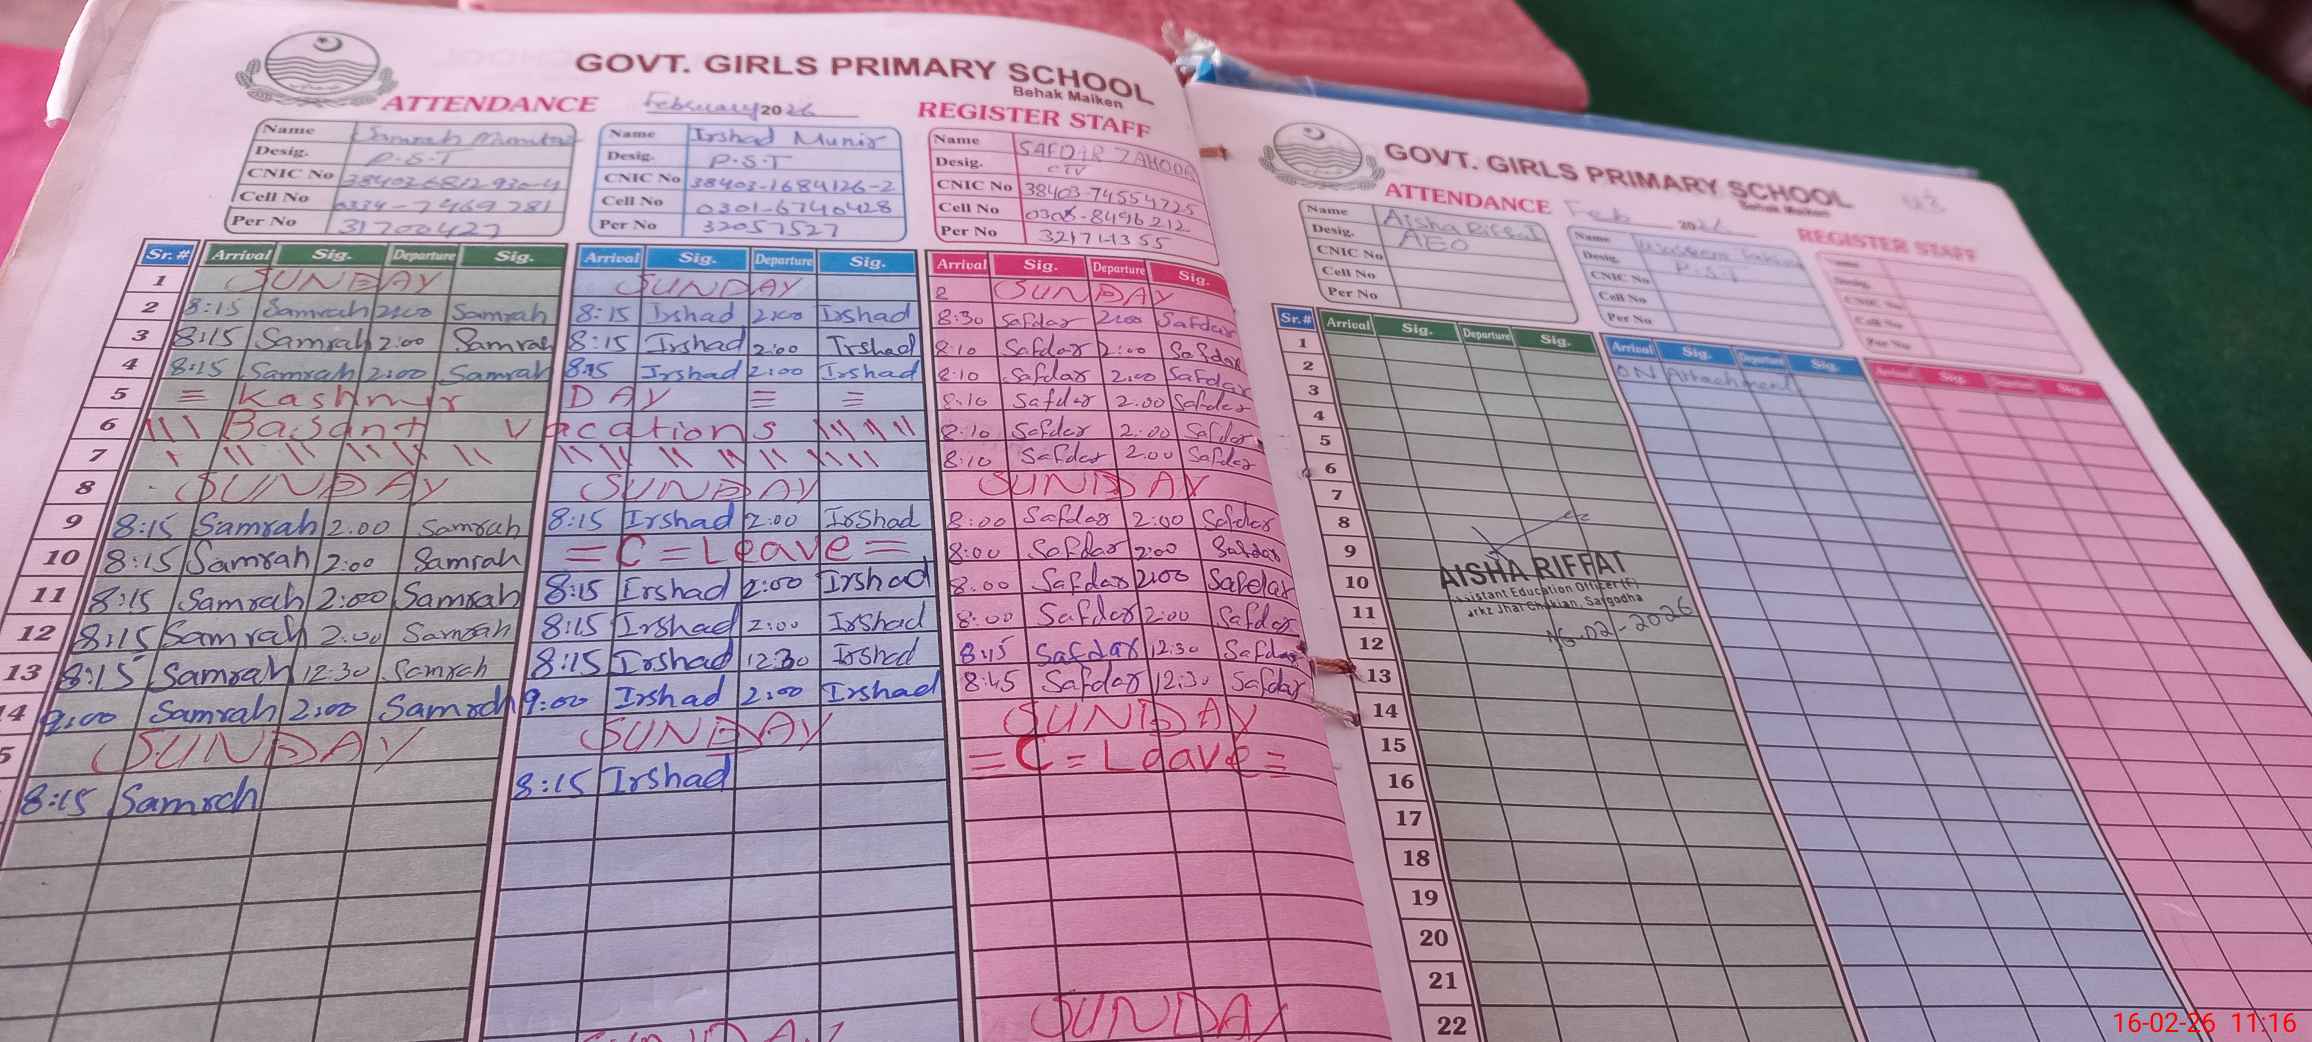 GOVT. GIRLS PRIMARY SCHOOL
Behak Maiken
ATTENDANCE February 2026 REGISTER STAFF
Name Samrah Mumtaz
Desig. P.S.T
CNIC No
Cell No 0334-7469781
Per No 31700427
Name Irshad Munir
Desig. P.S.T
CNIC No 38403-1684126-2
Cell No 0301-6740428
Per No 32057527
Name SAFDAR ZAHOOR
Desig.
CNIC No 38403-74554725
Cell No 0306-8496212
Per No 32171355
Sr.# Arrival Sig. Departure Sig. Arrival Sig. Departure Sig. Arrival Sig. Departure Sig.
1 SUNDAY SUNDAY SUNDAY
2 8:15 Samrah 2:00 Samrah 8:15 Irshad 2:00 Irshad 8:30 Safdar 2:00 Safdar
3 8:15 Samrah 2:00 Samrah 8:15 Irshad 2:00 Irshad 8:10 Safdar 2:00 Safdar
4 8:15 Samrah 2:00 Samrah 8:15 Irshad 2:00 Irshad 8:10 Safdar 2:00 Safdar
5 = Kashmir DAY = = 8:10 Safdar 2.00 Safdar
6 Basant vacations 8:10 Safdar 2:00 Safdar
7 8:10 Safdar 2.00 Safdar
8 SUNDAY SUNDAY SUNDAY
9 8:15 Samrah 2.00 Samrah 8:15 Irshad 2:00 Irshad 8:00 Safdar 2:00 Safdar
10 8:15 Samrah 2:00 Samrah = C = Leave = 8:00 Safdar 2:00 Safdar
11 8:15 Samrah 2:00 Samrah 8:15 Irshad 2:00 Irshad 8.00 Safdar 2:00 Safdar
12 8:15 Samrah 2:00 Samrah 8:15 Irshad 2:00 Irshad 8:00 Safdar 2:00 Safdar
13 8:15 Samrah 12:30 Samrah 8:15 Irshad 12:30 Irshad 8:15 Safdar 12:30 Safdar
14 9:00 Samrah 2:00 Samrah 9:00 Irshad 2:00 Irshad 8:45 Safdar 12:30 Safdar
5 SUNDAY SUNDAY SUNDAY
8:15 Samrah 8:15 Irshad = C = Leave =
SUNDAY SUNDAY
GOVT. GIRLS PRIMARY SCHOOL
Behak Maiken
ATTENDANCE Feb 2026 REGISTER STAFF
Name Aisha Riffat
Desig. AEO
CNIC No
Cell No
Per No
Name
Desig. P.S.T
CNIC No
Cell No
Per No
Name
Desig.
CNIC No
Cell No
Per No
Sr.# Arrival Sig. Departure Sig. Arrival Sig. Departure Sig. Arrival Sig. Departure Sig.
1
2 ON Attachment
3
4
5
6
7
8
9
10
11
12
13
14
15
16
17
18
19
20
21
22
AISHA RIFFAT
Assistant Education Officer (F)
Sargodha
16-02-2026
16-02-26 11:16